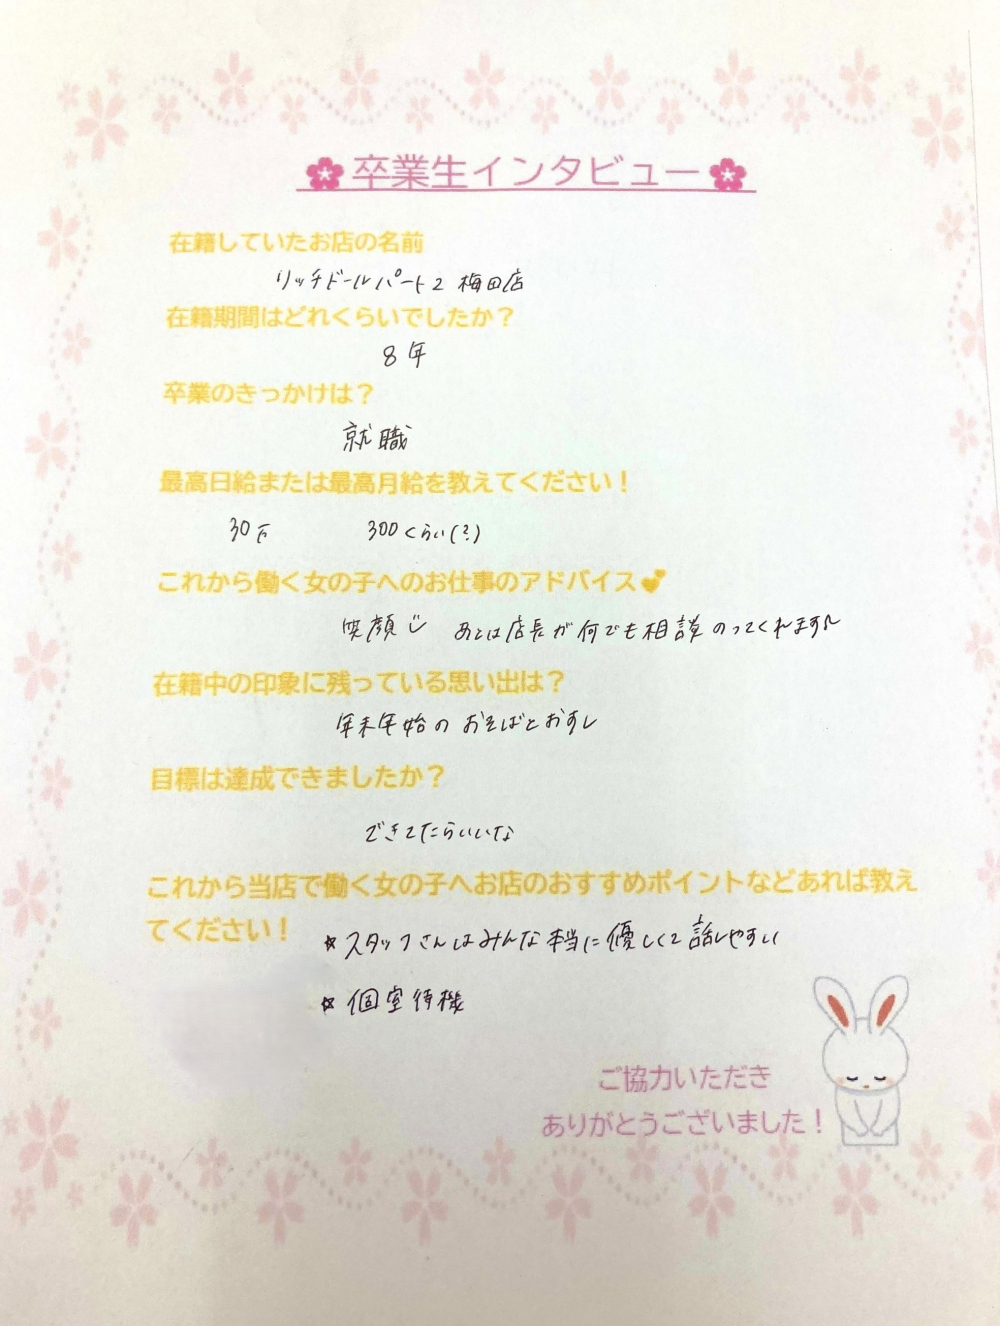 卒業生インタビュー
在籍していたお店の名前
リッチドールパート2 梅田店
在籍期間はどれくらいでしたか？
8年
卒業のきっかけは？
就職
最高日給または最高月給を教えてください！
30万 300くらい(?)
これから働く女の子へのお仕事のアドバイス💕
笑顔 あとは店長が何でも相談のってくれます
在籍中の印象に残っている思い出は？
年末年始の おそばとおすし
目標は達成できましたか？
できてたらいいな
これから当店で働く女の子へお店のおすすめポイントなどあれば教え
てください！
☆スタッフさんはみんな本当に優しくて話しやすい
☆個室待機
ご協力いただき
ありがとうございました！